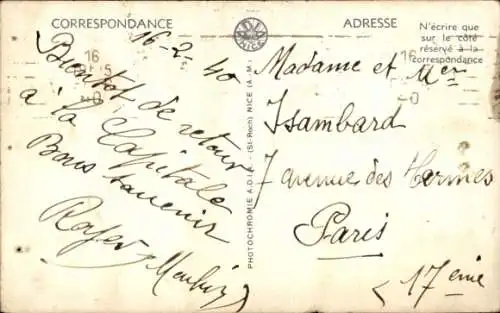 CORRESPONDANCE
ADRESSE
N'écrire que
sur le côté
réservé à la
correspondance
ADIA
NICE
16
16
5
40
40
16-2-40
Bientôt de retour
à la Capitale
Bons souvenir
Roger
PHOTOCHROMIE A.D.I.A. - (St-Roch) NICE (A.-M.)
Madame et Mer
Isambard
7 avenue des Termes
Paris
17 eme